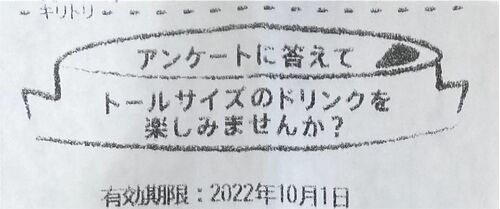 キリトリ
アンケートに答えて
トールサイズのドリンクを
楽しみませんか？
有効期限：2022年10月1日